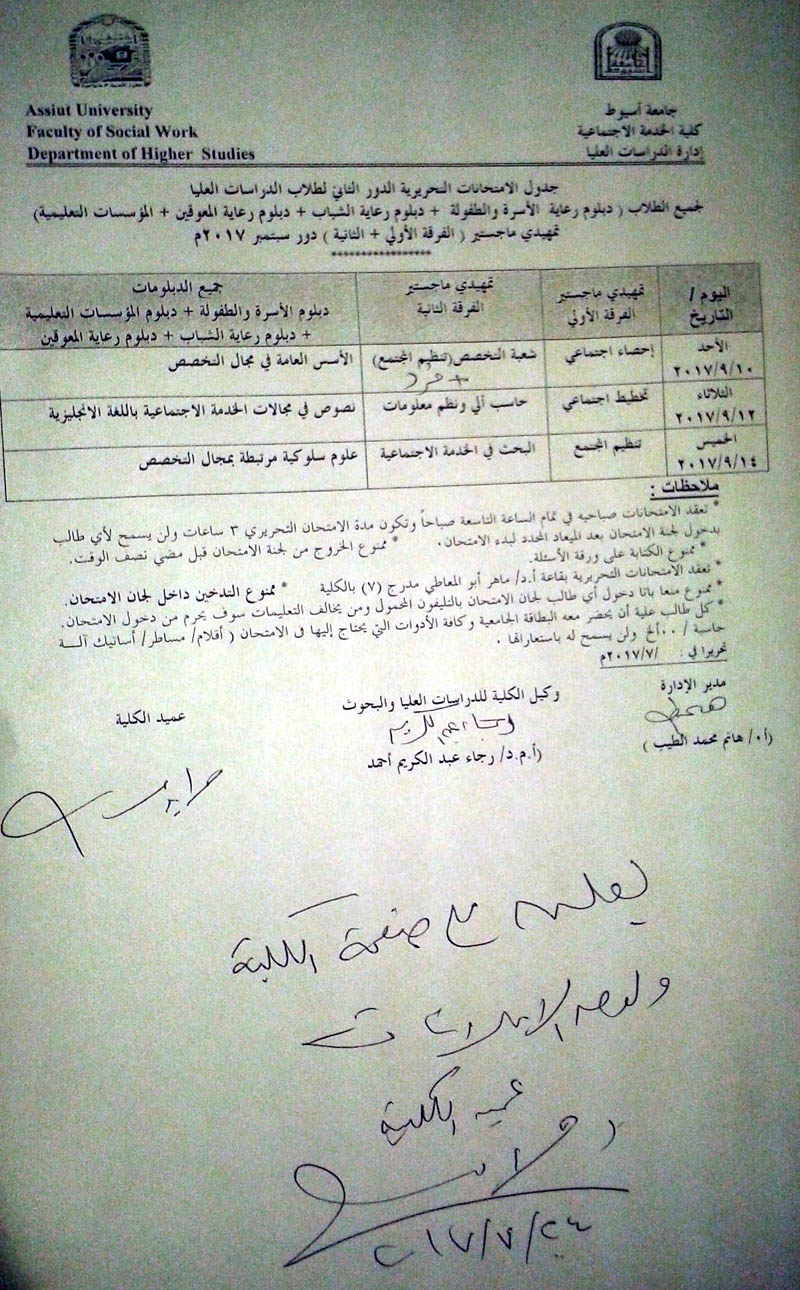 Assiut University
Faculty of Social Work
Department of Higher Studies
جامعة أسيوط
كلية الخدمة الاجتماعية
إدارة الدراسات العليا
جدول الامتحانات التحريرية الدور الثاني لطلاب الدراسات العليا
لجميع الطلاب ( دبلوم رعاية الأسرة والطفولة + دبلوم رعاية الشباب + دبلوم رعاية المعوقين + المؤسسات التعليمية)
تمهيدي ماجستير ( الفرقة الأولي + الثانية ) دور سبتمبر ٢٠١٧م
****************
اليوم / التاريخ	تمهيدي ماجستير الفرقة الأولي	تمهيدي ماجستير الفرقة الثانية	جميع الدبلومات دبلوم الأسرة والطفولة + دبلوم المؤسسات التعليمية + دبلوم رعاية الشباب + دبلوم رعاية المعوقين
الأحد ٢٠١٧/٩/١٠	إحصاء اجتماعي	شعبة التخصص(تنظيم المجتمع) + فرد	الأسس العامة في مجال التخصص
الثلاثاء ٢٠١٧/٩/١٢	تخطيط اجتماعي	حاسب ألي ونظم معلومات	نصوص في مجالات الخدمة الاجتماعية باللغة الانجليزية
الخميس ٢٠١٧/٩/١٤	تنظيم المجتمع	البحث في الخدمة الاجتماعية	علوم سلوكية مرتبطة بمجال التخصص
ملاحظات :
* تعقد الامتحانات صباحيه في تمام الساعة التاسعة صباحاً وتكون مدة الامتحان التحريري ٣ ساعات ولن يسمح لأي طالب
بدخول لجنة الامتحان بعد الميعاد المحدد لبدء الامتحان. * ممنوع الخروج من لجنة الامتحان قبل مضي نصف الوقت.
* ممنوع الكتابة على ورقة الأسئلة.
* تعقد الامتحانات التحريرية بقاعة أ.د/ ماهر أبو المعاطي مدرج (٧) بالكلية * ممنوع التدخين داخل لجان الامتحان.
* ممنوع منعا باتا دخول أي طالب لجان الامتحان بالتليفون المحمول ومن يخالف التعليمات سوف يحرم من دخول الامتحان.
* كل طالب علية أن يحضر معه البطاقة الجامعية وكافة الأدوات التي يحتاج إليها فى الامتحان ( أقلام/ مساطر/ أساتيك آلـــة
حاسبة / ..ألخ ولن يسمح له باستعارتها .
تحريرا في : /٢٠١٧/٧م
مدير الإدارة
(أ٠/ هانم محمد الطيب )
وكيل الكلية للدراسات العليا والبحوث
رجاء عبد الكريم
(أ.م.د/ رجاء عبد الكريم أحمد
عميد الكلية
يعلن على صفحة الكلية
ولوحة الإعلانات
عميد الكلية
٢٠١٧/٧/٢٤